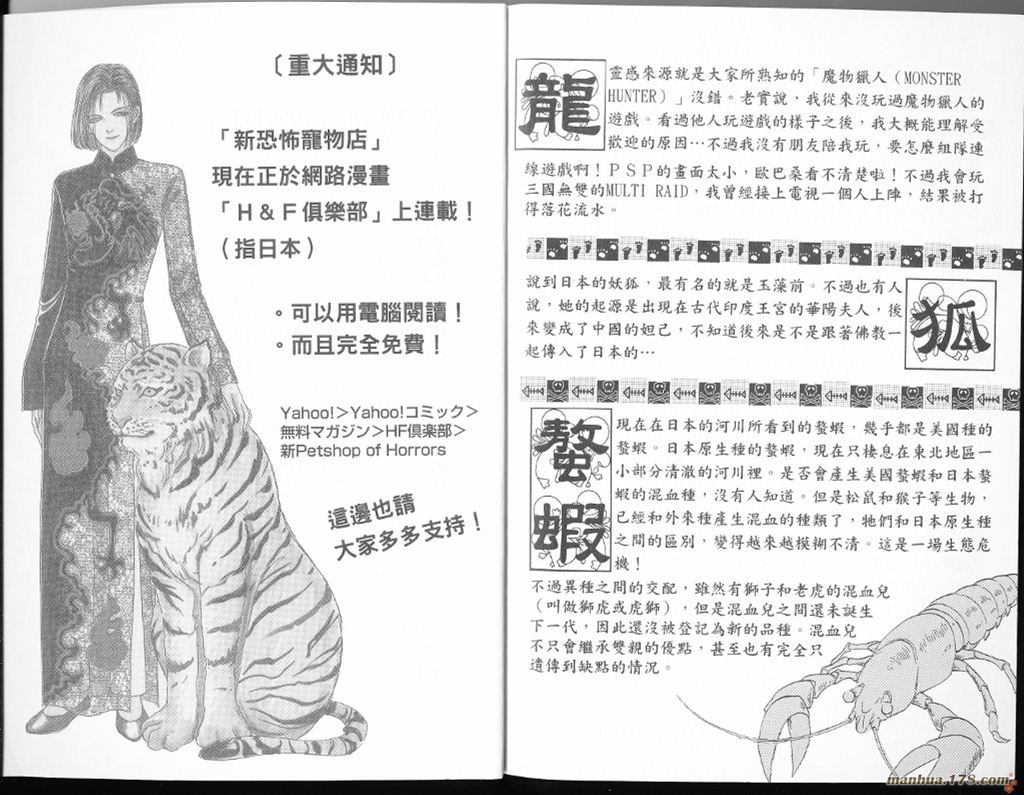 〔重大通知〕
「新恐怖寵物店」
現在正於網路漫畫
「H＆F俱樂部」上連載！
（指日本）
。可以用電腦閱讀！
。而且完全免費！
Yahoo!＞Yahoo!コミック＞
無料マガジン＞HF倶楽部＞
新Petshop of Horrors
這邊也請
大家多多支持！
龍
靈感來源就是大家所熟知的「魔物獵人（MONSTER
HUNTER）」沒錯。老實說，我從來沒玩過魔物獵人的
遊戲。看過他人玩遊戲的樣子之後，我大概能理解受
歡迎的原因…不過我沒有朋友陪我玩，要怎麼組隊連
線遊戲啊！PSP的畫面太小，歐巴桑看不清楚啦！不過我會玩
三國無雙的MULTI RAID，我曾經接上電視一個人上陣，結果被打
得落花流水。
說到日本的妖狐，最有名的就是玉藻前。不過也有人
說，她的起源是出現在古代印度王宮的華陽夫人，後
來變成了中國的妲己，不知道後來是不是跟著佛教一
起傳入了日本的…
狐
螯
蝦
現在在日本的河川所看到的螯蝦，幾乎都是美國種的
螯蝦。日本原生種的螯蝦，現在只棲息在東北地區一
小部分清澈的河川裡。是否會產生美國螯蝦和日本螯
蝦的混血種，沒有人知道。但是松鼠和猴子等生物，
已經和外來種產生混血的種類了，牠們和日本原生種
之間的區別，變得越來越模糊不清。這是一場生態危
機！
不過異種之間的交配，雖然有獅子和老虎的混血兒
（叫做獅虎或虎獅），但是混血兒之間還未誕生
下一代，因此還沒被登記為新的品種。混血兒
不只會繼承雙親的優點，甚至也有完全只
遺傳到缺點的情況。
manhua.178.com